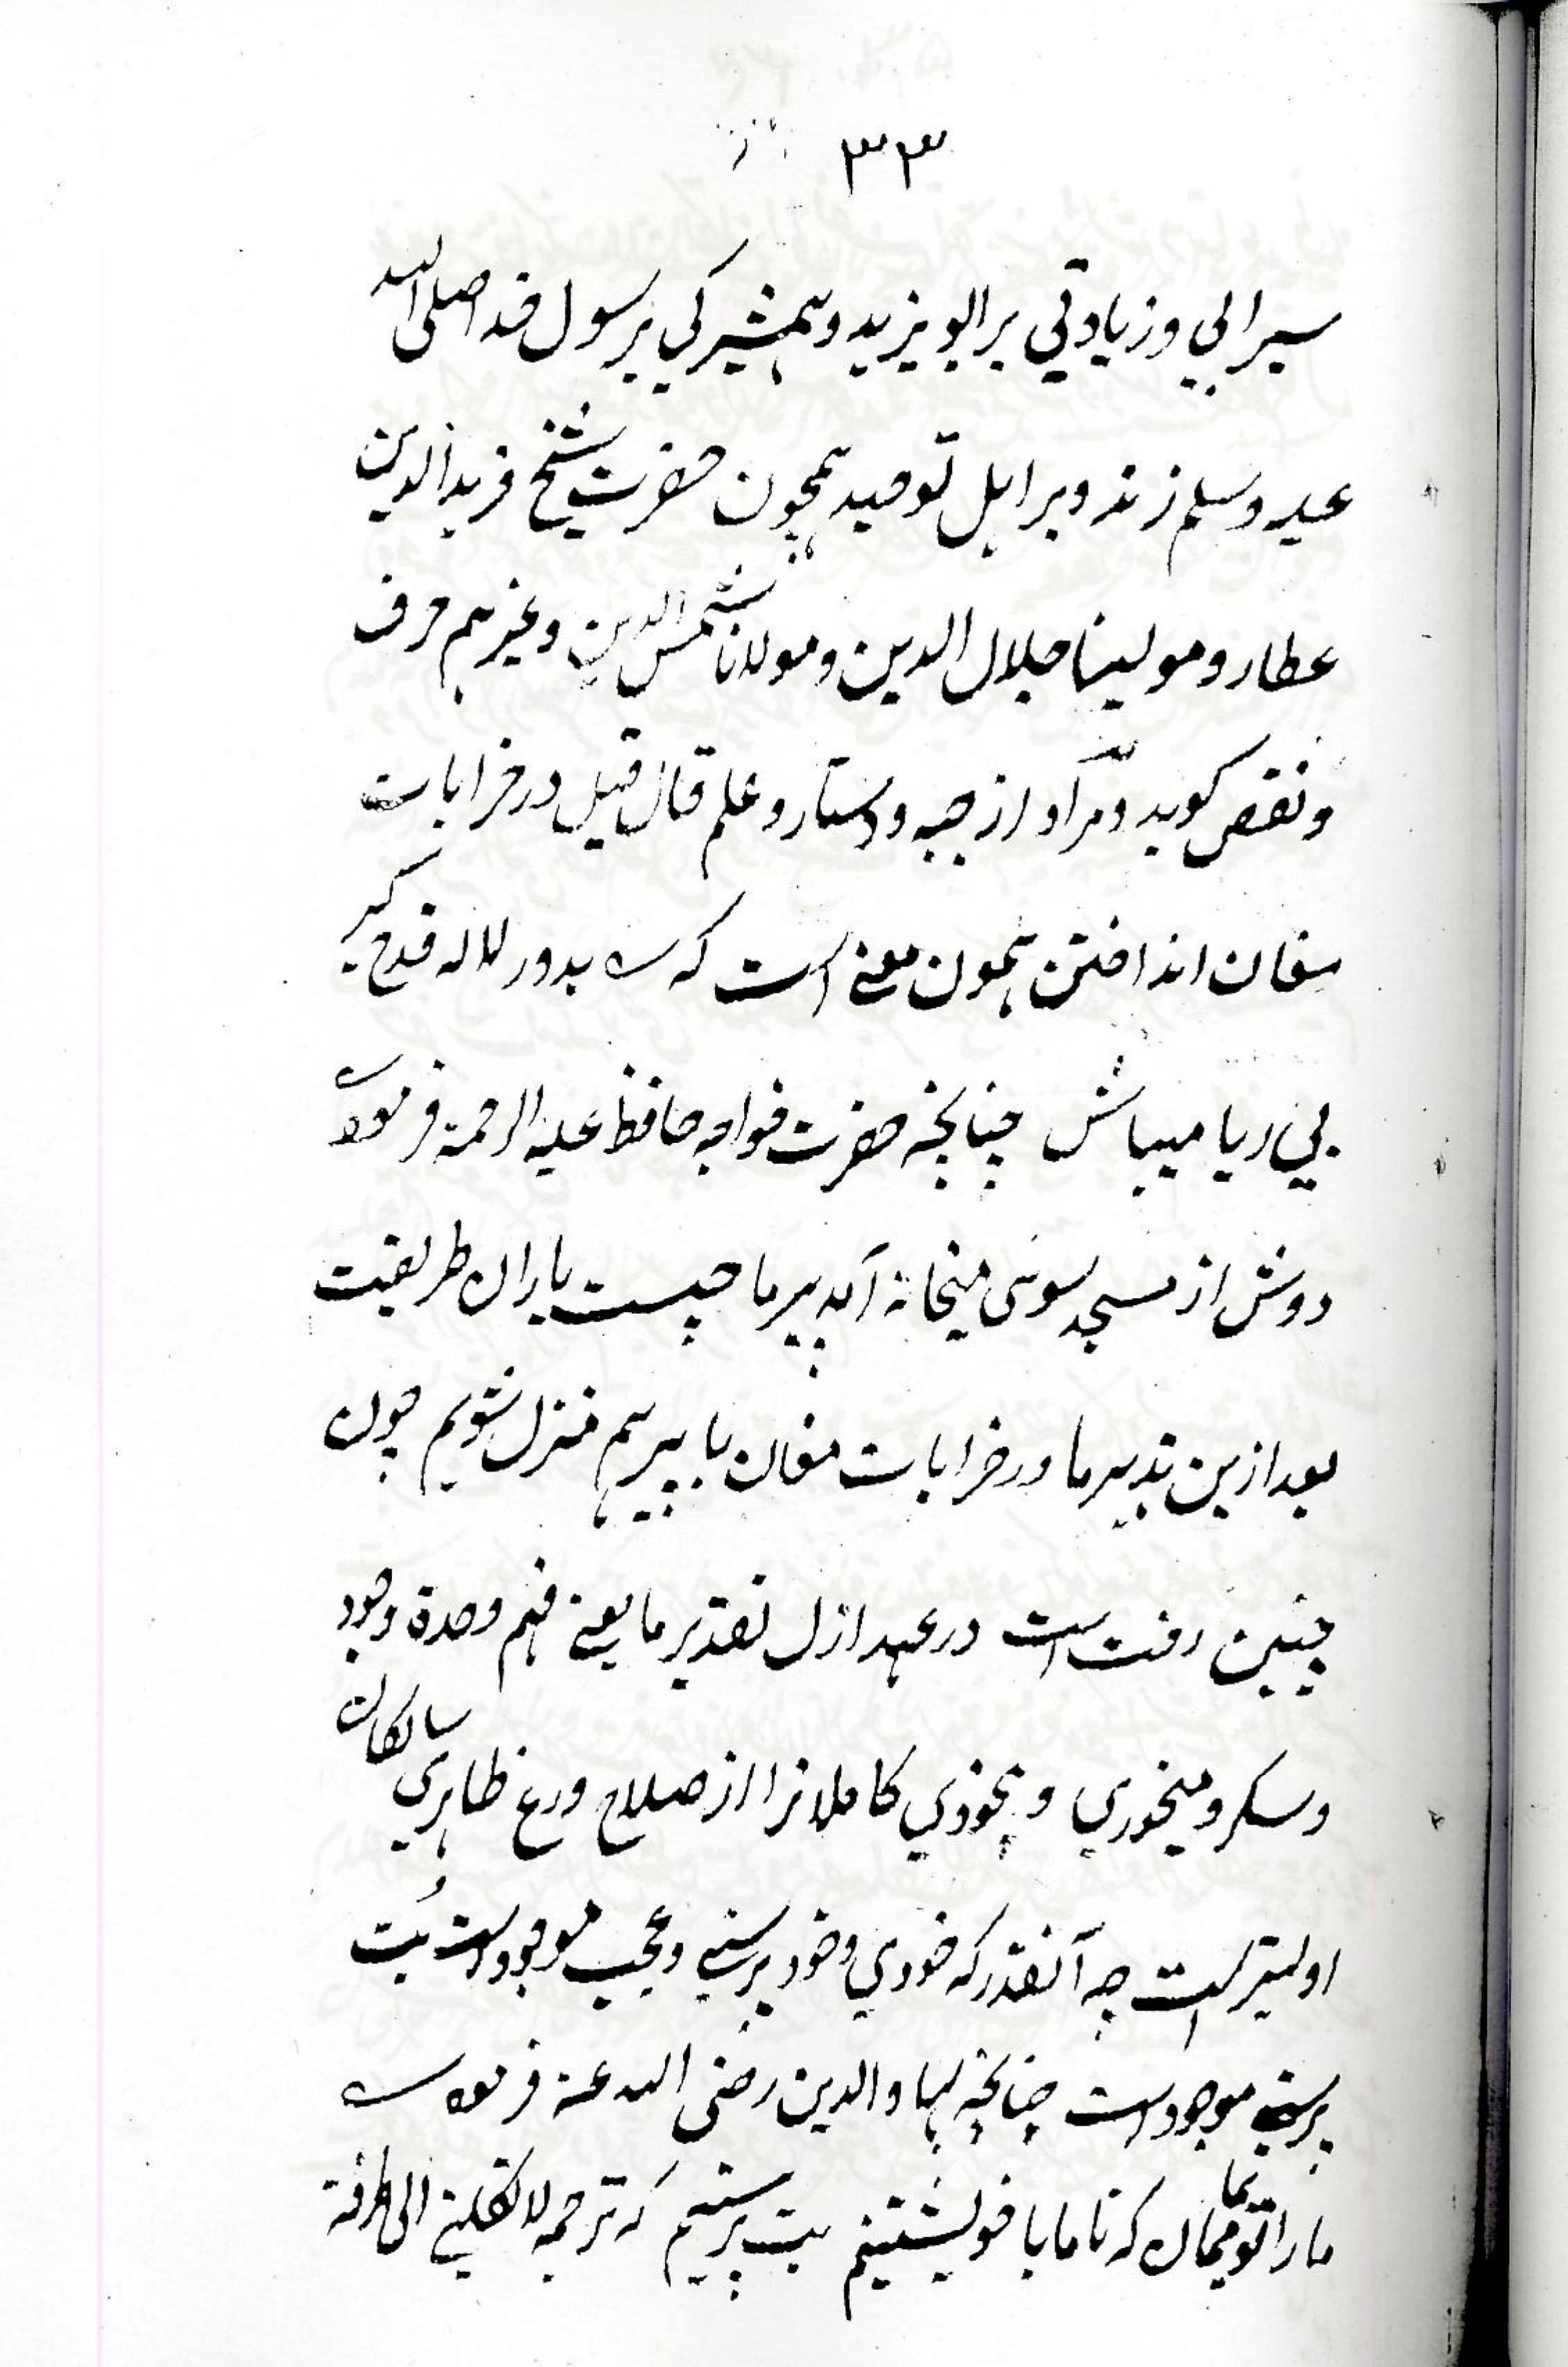 ۳۳
سیرابی و زیادتی بر ابو یزید و همشیرکی بر رسول خدا صلی الله
علیه وسلم زند و بر اهل توحید همچون حضرت شیخ فریدالدین
عطار و مولینا جلال الدین و مولانا شمس الدین و غیرهم حرف
و نقص کوید و مراد از جبه و دستار و علم قال قیل در خرابات
مغان انداختن همون معنی است که ؎ بدور لاله قدح گیر
بی ریا میباش چنانچه حضرت خواجه حافظ علیه الرحمة فرموده
دوش از مسجد سوی میخانه آمد پیر ما چیست یاران طریقت
بعد ازین تدبیر ما در خرابات مغان با پیر هم منزل شویم چون
چنین رفت است در عهد ازل تقدیر ما یعنی فهم وحدة وجود
و سکر و میخوری و بیخودی کاملانرا از صلاح ورع ظاهری سالکان
اولیتر است چه آنقدر که خودی و خود پرستی و عجب موجود است بُت
پرستی موجود است چنانچه بهاوالدین رضی الله عنه فرموده ؎
ما را تو بما ممان که تا ما با خویشتنیم بت پرستیم که ترجمه لا تکلنی الی طرفة